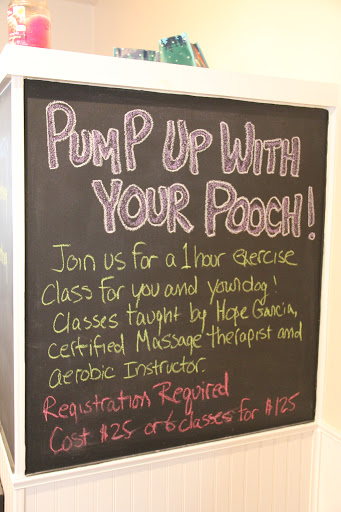 PUMP UP WITH
YOUR POOCH!
Join us for a 1 hour exercise
class for you and your dog!
Classes taught by Hope Garcia,
certified Massage therapist and
aerobic Instructor.
Registration Required
Cost $25 or 6 classes for $125